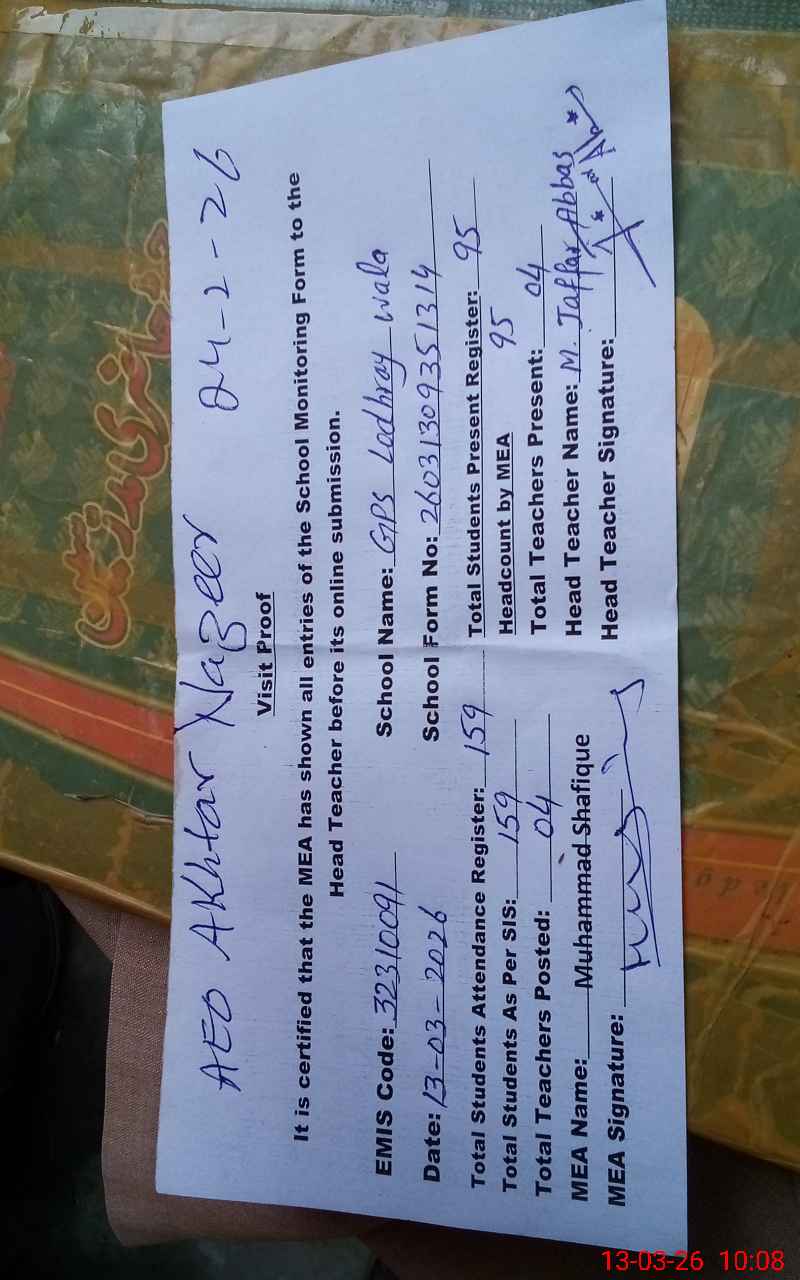 AEO AKhtar Nazeer 24-2-26
Visit Proof
It is certified that the MEA has shown all entries of the School Monitoring Form to the
Head Teacher before its online submission.
EMIS Code: 32310091 School Name: GPS Lodhray wala
Date: 13-03-2026 School Form No: 26031309351314
Total Students Attendance Register: 159 Total Students Present Register: 95
Total Students As Per SIS: 159 Headcount by MEA 95
Total Teachers Posted: 04 Total Teachers Present: 04
MEA Name: Muhammad Shafique Head Teacher Name: M. Jaffar Abbas
MEA Signature: Head Teacher Signature:
13-03-26 10:08